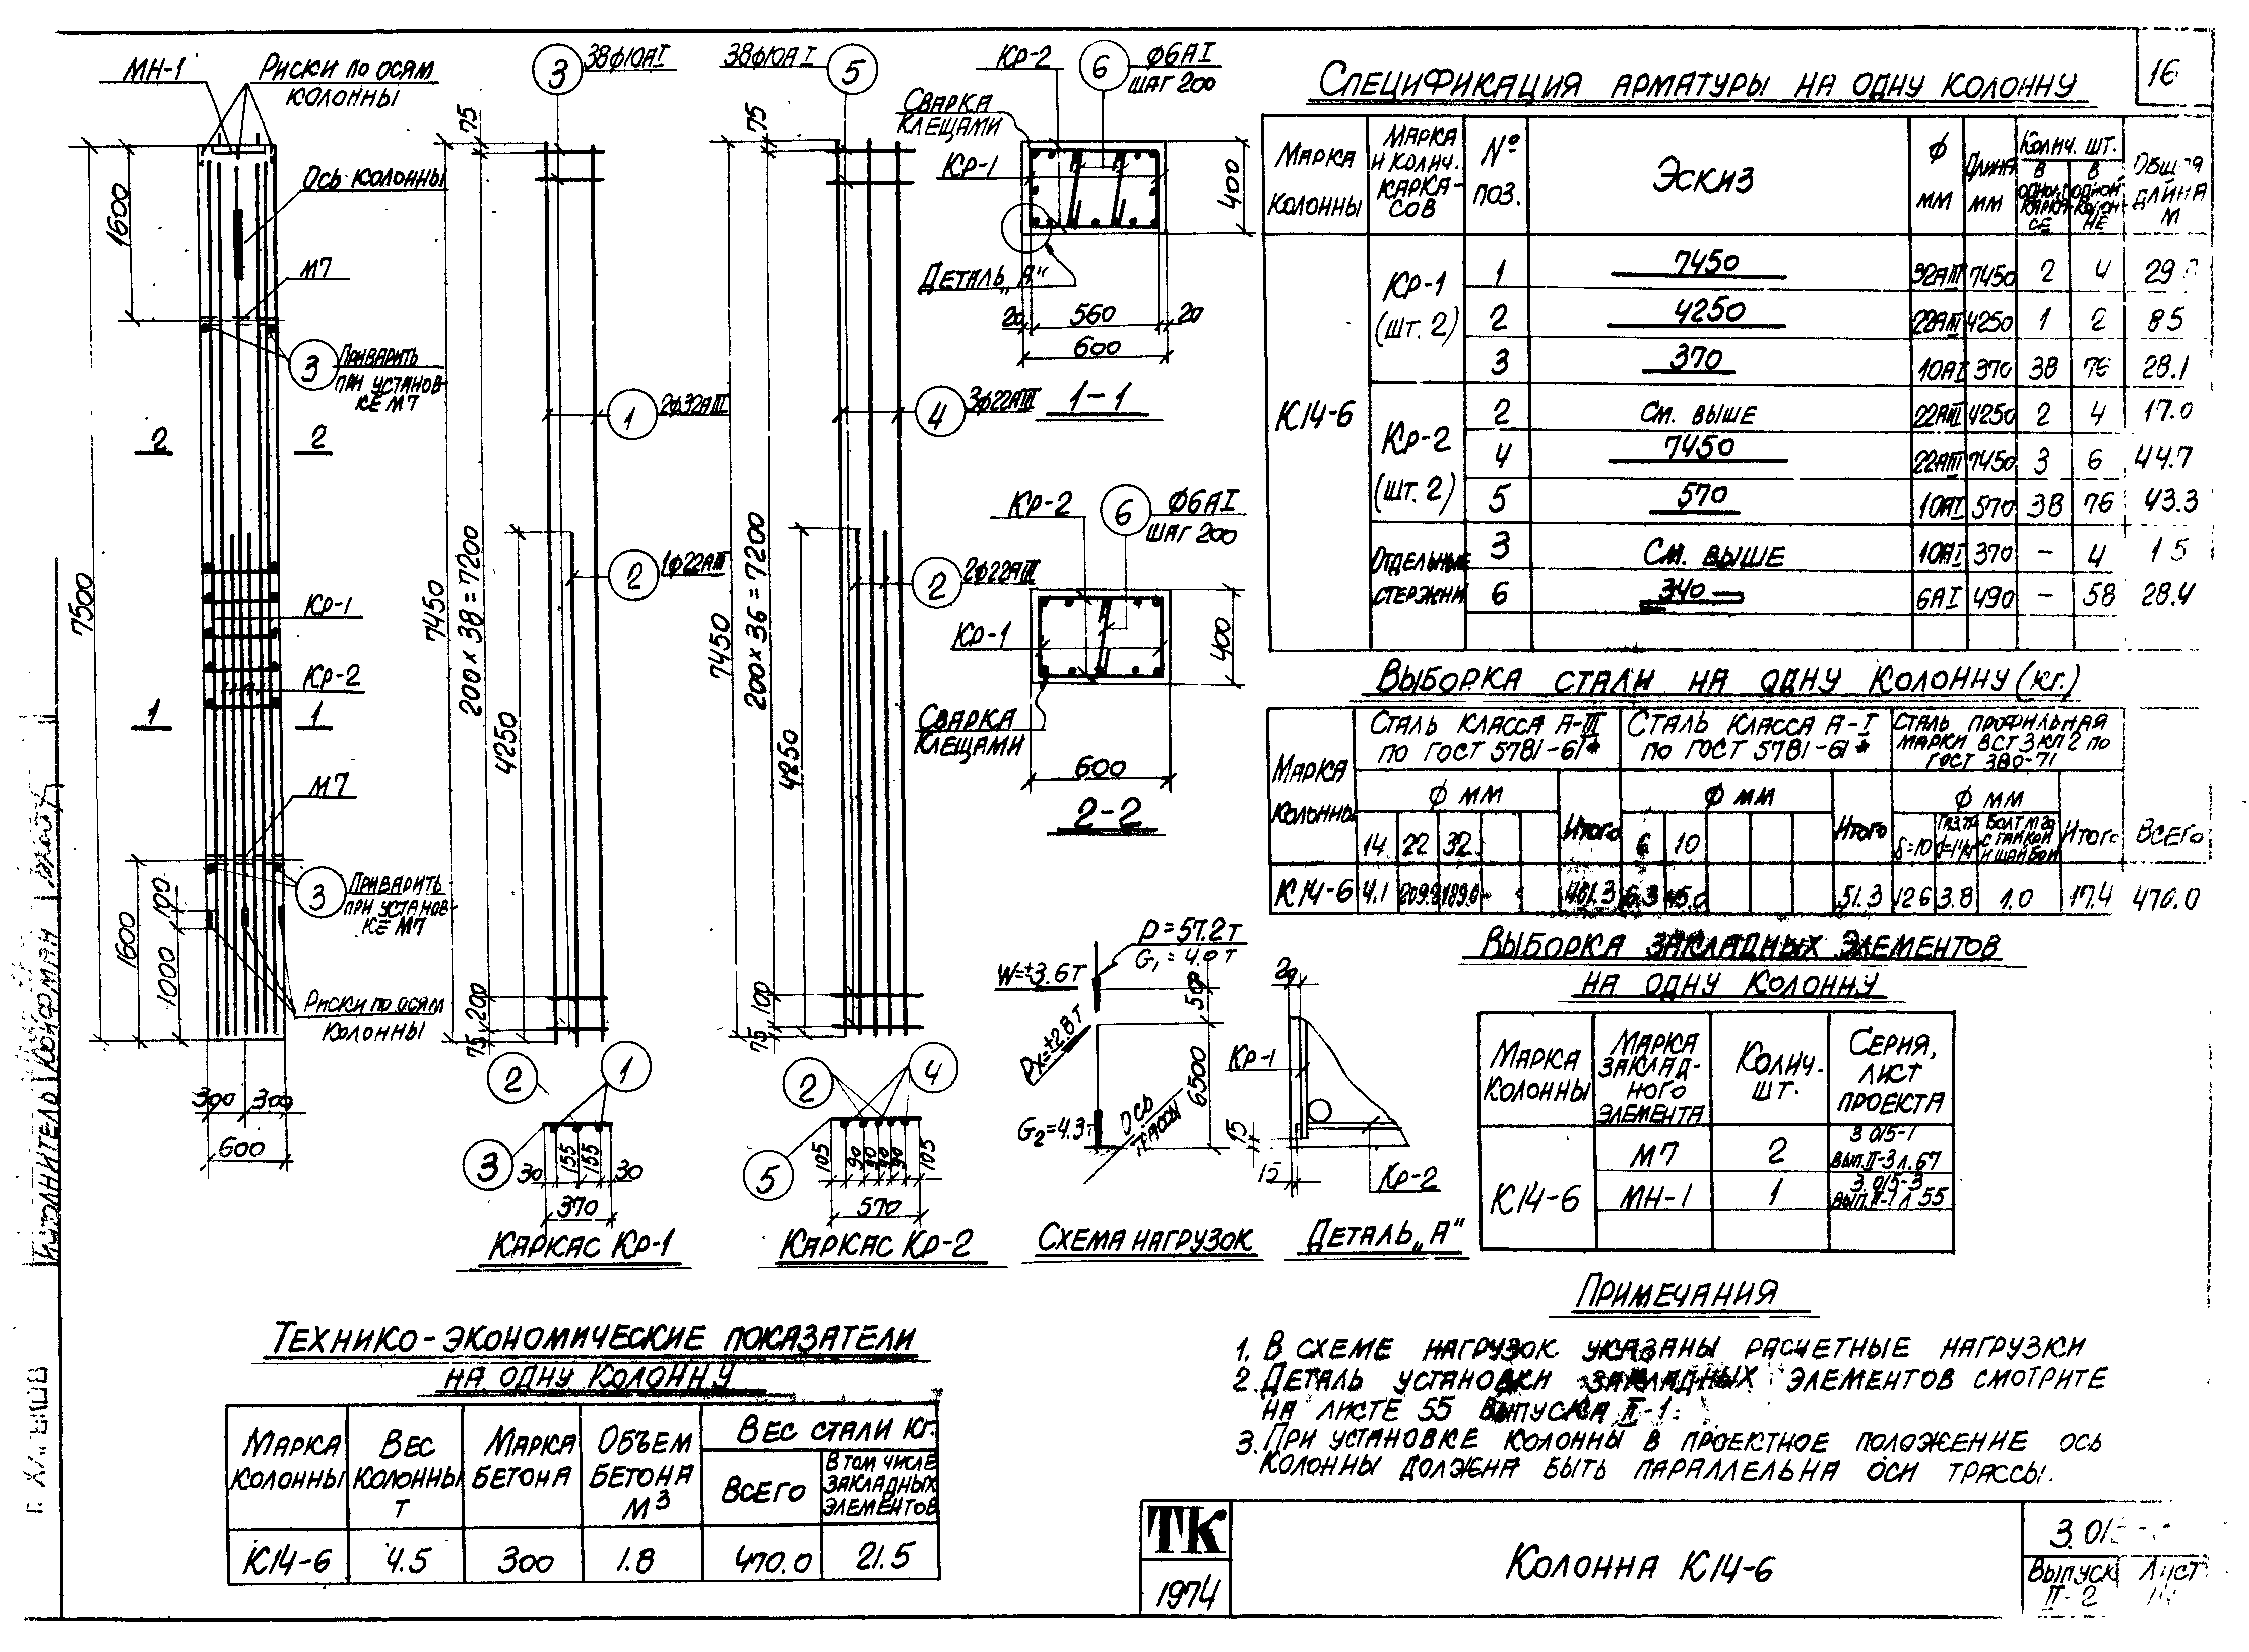 16
МН-1
Риски по осям
колонны
Ось колонны
М7
3
Приварить
при установ-
ке М7
1600
7500
2 2
Кр-1
Кр-2
1 1
М7
3
Приварить
при установ-
ке М7
1600
100
1000
Риски по осям
колонны
300 300
600
3
38ф10АI
75
7450
200×38=7200
4250
1
2ф32АIII
2
1ф22АIII
200
75
2
1
3
30 155 155 30
370
Каркас Кр-1
38ф10АI
5
75
7450
200×36=7200
4250
4
3ф22АIII
2
2ф22АIII
100
75
2
4
5
105 90 90 90 90 105
570
Каркас Кр-2
Кр-2
6
ф6АI
шаг 200
Сварка
клещами
Кр-1
400
Деталь „А"
20 560 20
600
1-1
Кр-2
6
ф6АI
шаг 200
Кр-1
400
Сварка
клещами
600
2-2
Р=57.2т
G1=4.0т
W=±3.6т
500
6500
G2=4.3т
Ось
трассы
Схема нагрузок
Кр-1
15
15
Кр-2
Деталь „А"
Спецификация арматуры на одну колонну
Марка колонны
Марка и колич. каркасов
№ поз.
Эскиз
ф мм
Длина мм
Колич. шт.
В одном каркасе
В одной колонне
Общая длина м
К14-6
Кр-1
(шт. 2)
1 7450 32АIII 7450 2 4
2 4250 22АIII 4250 1 2 8.5
3 370 10АI 370 38 76 28.1
Кр-2
(шт. 2)
2 См. выше 22АIII 4250 2 4 17.0
4 7450 22АIII 7450 3 6 44.7
5 570 10АI 570 38 76 43.3
Отдельные
стержни
3 См. выше 10АI 370 – 4 1.5
6 340 6АI 490 – 58 28.4
Выборка стали на одну колонну (кг.)
Марка колонны
Сталь класса А-III
по ГОСТ 5781-61*
Сталь класса А-I
по ГОСТ 5781-61*
Сталь профильная
марки ВСТ3КП2 по
ГОСТ 380-71
ф мм ф мм ф мм
14 22 32 Итого 6 10 Итого δ=10
Болт
с гайкой
и шайбой
Итого
Всего
К14-6 4.1 189.0 6.3 45.0 51.3 12.6 3.8 1.0 17.4 470.0
Выборка закладных элементов
на одну колонну
Марка колонны
Марка закладного элемента
Колич. шт.
Серия, лист проекта
К14-6
М7 2 3.015-1
Вып. II-3 л. 67
МН-1 1 3.015-3
Вып. II-1 л 55
Технико-экономические показатели
на одну колонну
Марка колонны
Вес колонны т
Марка бетона
Объем бетона м3
Вес стали кг.
Всего
В том числе закладных элементов
К14-6 4.5 300 1.8 470.0 21.5
Примечания
1. В схеме нагрузок указаны расчетные нагрузки
2. Деталь установки закладных элементов смотрите
на листе 55 выпуска II-1.
3. При установке колонны в проектное положение ось
колонны должна быть параллельна оси трассы.
ТК
1974
Колонна К14-6
Выпуск
II-2
Лист
Исполнитель